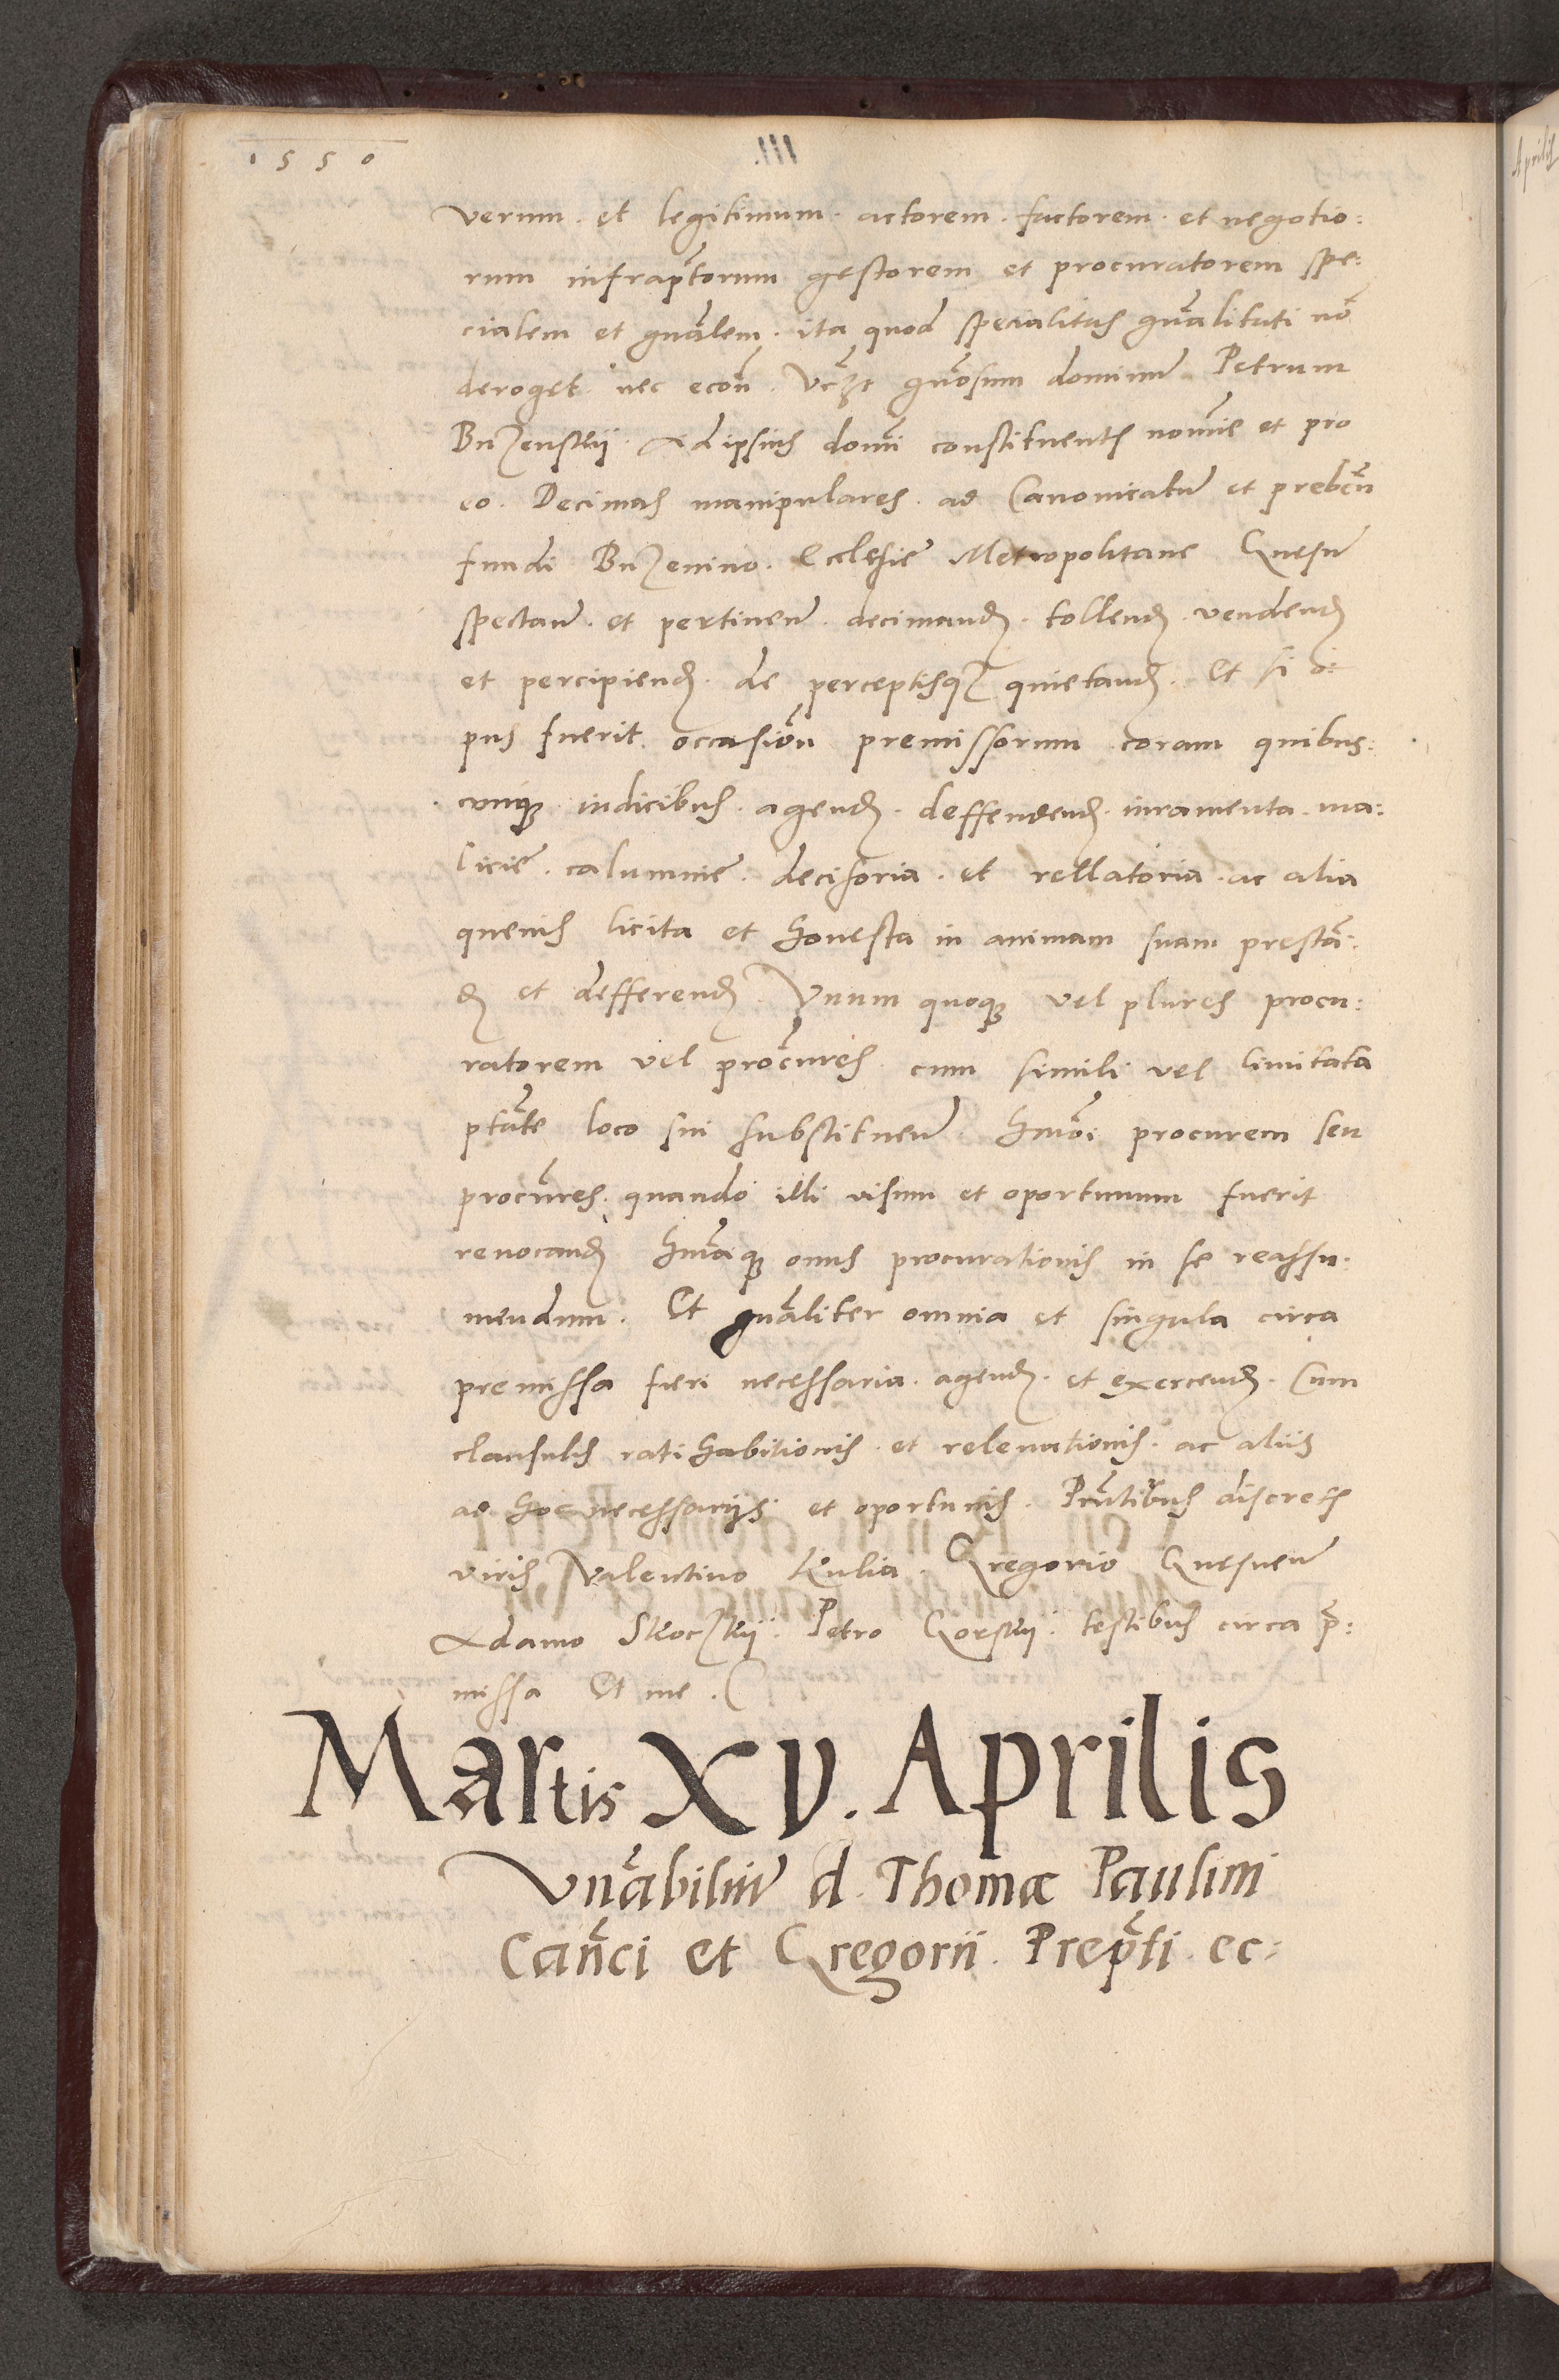 1550
verum et legitimum actorem factorem et negotio:
rum infrap̃torum gestorem et procuratorem spe:
cialem et gñalem. ita quod specialitas gñalitati nõ
deroget nec econ̄. Vc̃zt gñosum dominũ Petrum
Buzenskij. Ad ipsius domi constituentis nomĩe et pro
eo. Decimas manipulares ad Canonicatũ et prebeñ
fundi Buzenino. Ecclesie Metropolitane Gnesñ
spectañ. et pertineñ. decimand. tollend. vendend
et percipiend. de perceptisqz quietand. Et si o:
pus fuerit occasiõn premissorum coram quibus:
cunq iudicibus. agend. deffendend. iuramenta ma:
licie. calumnie. decisoria. et rellatoria. ac alia
quevis licita et honesta in animam suam prestã
d et defferend. Vnum quoq vel plures procu:
ratorem vel procũres cum simili vel limitata
ptãte loco sui substitueñ. Hmõi procurem seu
procũres. quando illi visum et oportunum fuerit
revocand Hmõiq onus procurationis in se reassu.
mendum. Et gñaliter omnia et singula circa
premissa fieri necessaria. agend. et exercend. Cum
clausulis rati habitionis. et relevationis. ac aliis
ad hoc necessariis et oportunis. Pñtibus discretis
viris Valentino Kulia. Gregorio Gnesneñ
Adamo Skoczkij. Petro Gorskij. testibus circa p̃:
missa Et me.
Martis XV. Aprilis
Vnãbiliũ d. Thomæ Paulini
Cañci et Gregorii. Prep̃ti. ec:
Aprilis